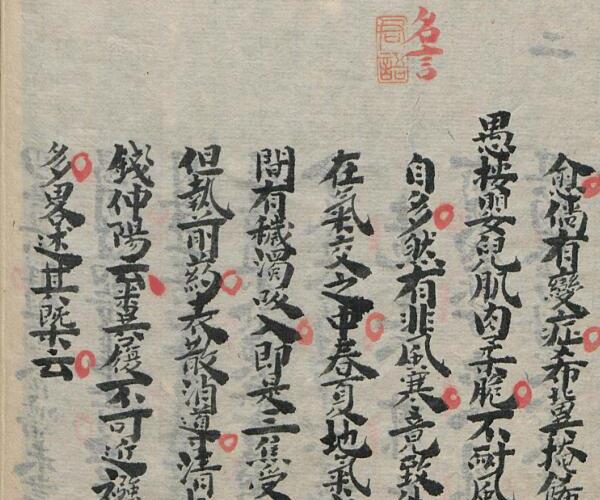 名言
愈倘有變症希北冀掩
愚按嬰兒肌肉柔脆不耐風
自多然有非風寒竟致
在氣交之中春夏地氣
間有穢濁吸入即是三焦受
但執前藥表散消導
錢仲陽云糞履不可近襁
多畧述其槩云